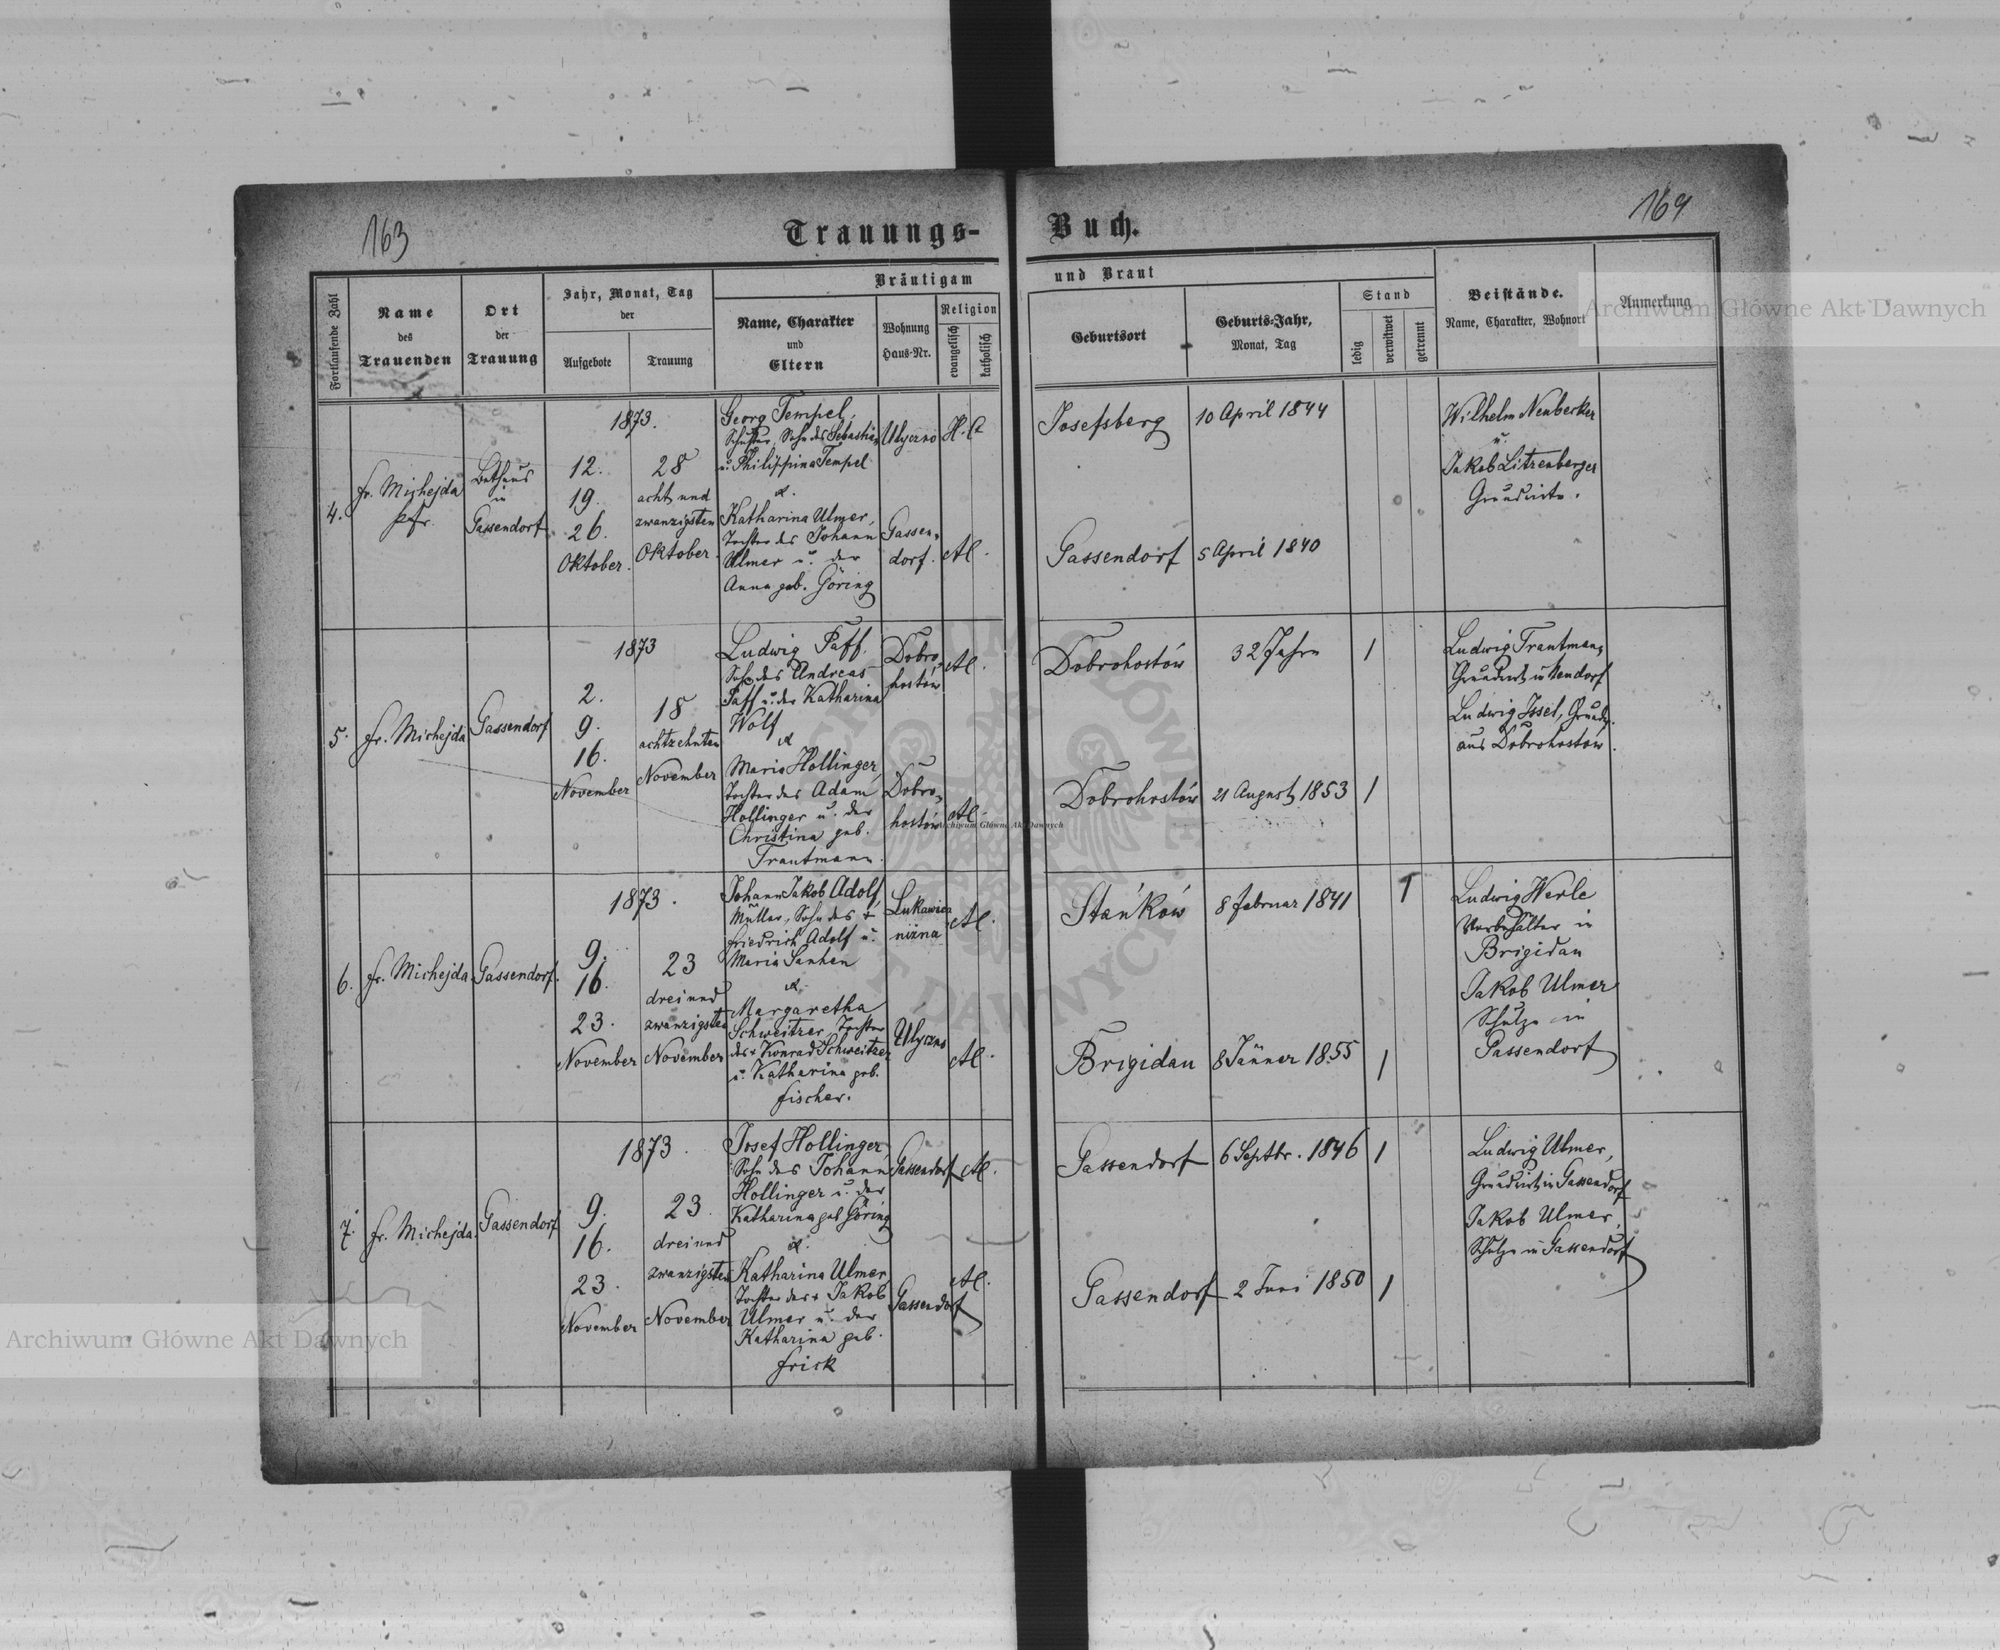 163
Trauungs-
Buch.
164
Fortlaufende Zahl
Name
des
Trauenden
Ort
der
Trauung
Jahr, Monat, Tag
der
Aufgebote
Trauung
Bräutigam
Name, Charakter
und
Eltern
Wohnung
Haus-Nr.
Religion
evangelisch
katholisch
und Braut
Geburtsort
Geburts-Jahr,
Monat, Tag
Stand
ledig
verwitwet
getrennt
Beistände.
Name, Charakter, Wohnort
Anmerkung
4.
Fr. Michejda
Pfr.
Bethaus
in
Gassendorf
1873.
12.
19.
26.
Oktober.
28
acht und
zwanzigsten
Oktober.
Georg Tempel,
Schuster, Sohn des Sebastian
u. Philippina Tempel
&.
Katharina Ulmer,
Tochter des Johann
Ulmer u. der
Anna geb. Göring
Ulyczno
Gassen-
dorf.
H. C.
A.
Josefsberg
10 April 1844
Gassendorf
5 April 1840
Wilhelm Neubecker
u.
Jakob Litzenberger
Grundwirte.
5.
Fr. Michejda
Gassendorf
1873
2.
9.
16.
November
18
achtzehnten
November
Ludwig Paff.
Sohn des Andreas
Paff u. der Katharina
Wolf
&
Maria Hollinger,
Tochter des Adam
Hollinger u. der
Christina geb.
Trautmann.
Dobro-
hostów
Dobro-
hostów
A.
A.
Dobrohostów
32 Jahre
1
Dobrohostów
21 August 1853
1
Ludwig Trautmann,
Grundwirt in Neudorf
Ludwig Issel, Grundw.
aus Dobrohostów.
6.
Fr. Michejda
Gassendorf.
1873.
9.
16.
23.
November
23
drei und
zwanzigsten
November
Johann Jakob Adolf,
Müller, Sohn des +
Friedrich Adolf u.
Maria Sanken
&.
Margaretha
Schweitzer, Tochter
des + Konrad Schweitzer
u. Katharina geb.
Fischer.
Lukawica
niżna
Ulyczno
A.
A.
Stańków
8 Februar 1841
1
Brigidau
8 Jänner 1855
1
Ludwig Werle
Vorbehälter in
Brigidau
Jakob Ulmer
Schulze in
Gassendorf
7.
Fr. Michejda.
Gassendorf
1873.
9.
16.
23.
November
23.
drei und
zwanzigsten
November
Josef Hollinger,
Sohn des Johann
Hollinger u. der
Katharina geb. Göring
&.
Katharina Ulmer,
Tochter des + Jakob
Ulmer u. der
Katharina geb.
Frick
Gassendorf
Gassendorf
A.
A.
Gassendorf
6 Septbr. 1846
1
Gassendorf
2 Juni 1850
1
Ludwig Ulmer,
Grundwirt in Gassendorf
Jakob Ulmer,
Schulze in Gassendorf
Archiwum Główne Akt Dawnych
Archiwum Główne Akt Dawnych
Archiwum Główne Akt Dawnych